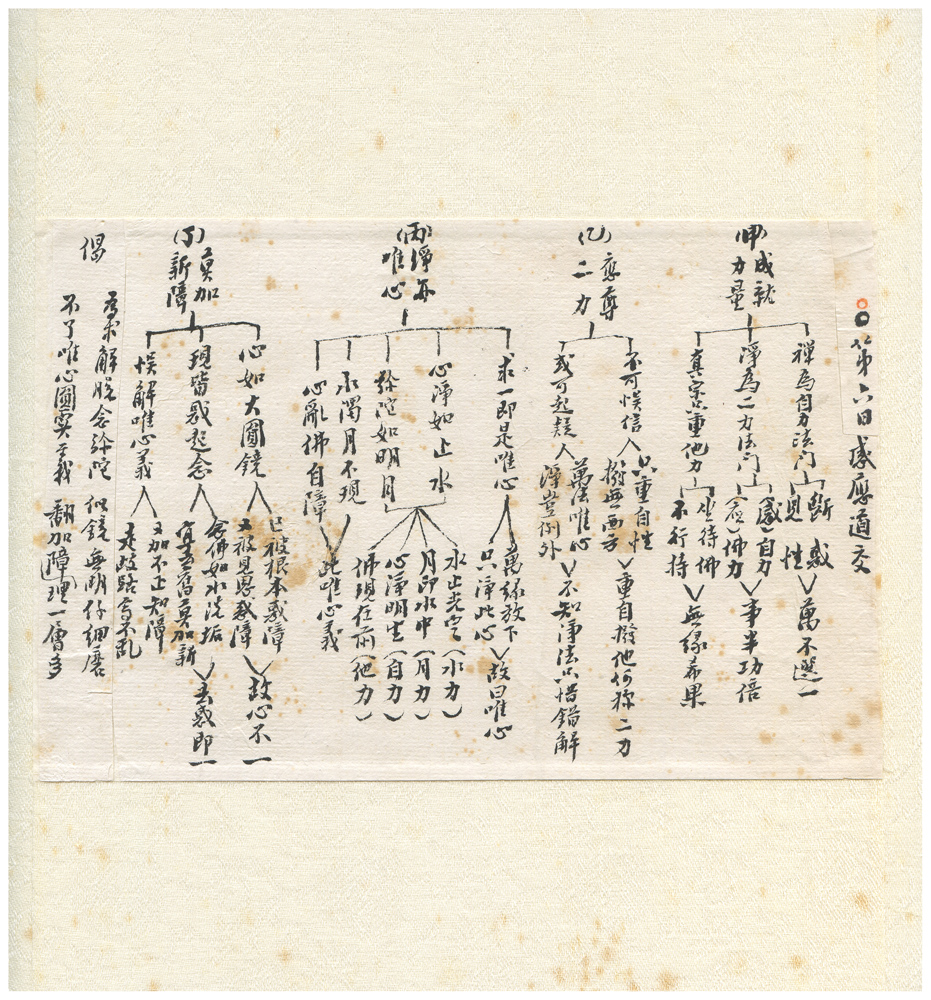 第六日感應道交
(甲)成就
力量
禪為自力法門
斷惑
見性
萬不選一
淨為二力法門
感自力
應佛力
事半功倍
真宗只重他力
坐待佛
不行持
無緣希果
(乙)應尊
二力
不可悮信
只重自性
撥無西方
重自撥他何称二力
或可起疑
萬法唯心
淨豈例外
不知淨法只惜錯解
(丙)淨
唯心
求一即是唯心
萬緣放下
只淨此心
故曰唯心
心淨如止水
弥陀如明月
水止光空(水力)
月印水中(月力)
心淨明生(自力)
佛現在前(他力)
水濁月不現
心亂佛自障
此唯心義
(丁)莫加
新障
心如大圓鏡
已被根本惑障
又被見思惑障
故心不一
現皆惑起念
念佛如水洗垢
宜去舊莫加新
去惑即一
悮解唯心義
又加不正知障
走歧路令不亂
偈
為求解脱念弥陀 似鏡無明仔細磨
不了唯心圓實義 翻加障(理)一層多